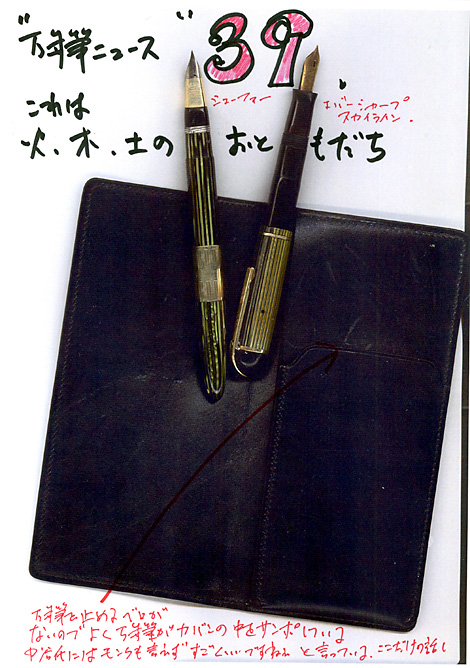 "万年筆ニュース" 39
シェーファー
エバーシャープ
スカイライン.
これは
火、木、土の おともだち
万年筆を止めるベロが
ないのでよく万年筆がカバンの中をサンポしている
中谷氏にはモンクも言えずすごくいいですねぇと言っている。ここだけの話し